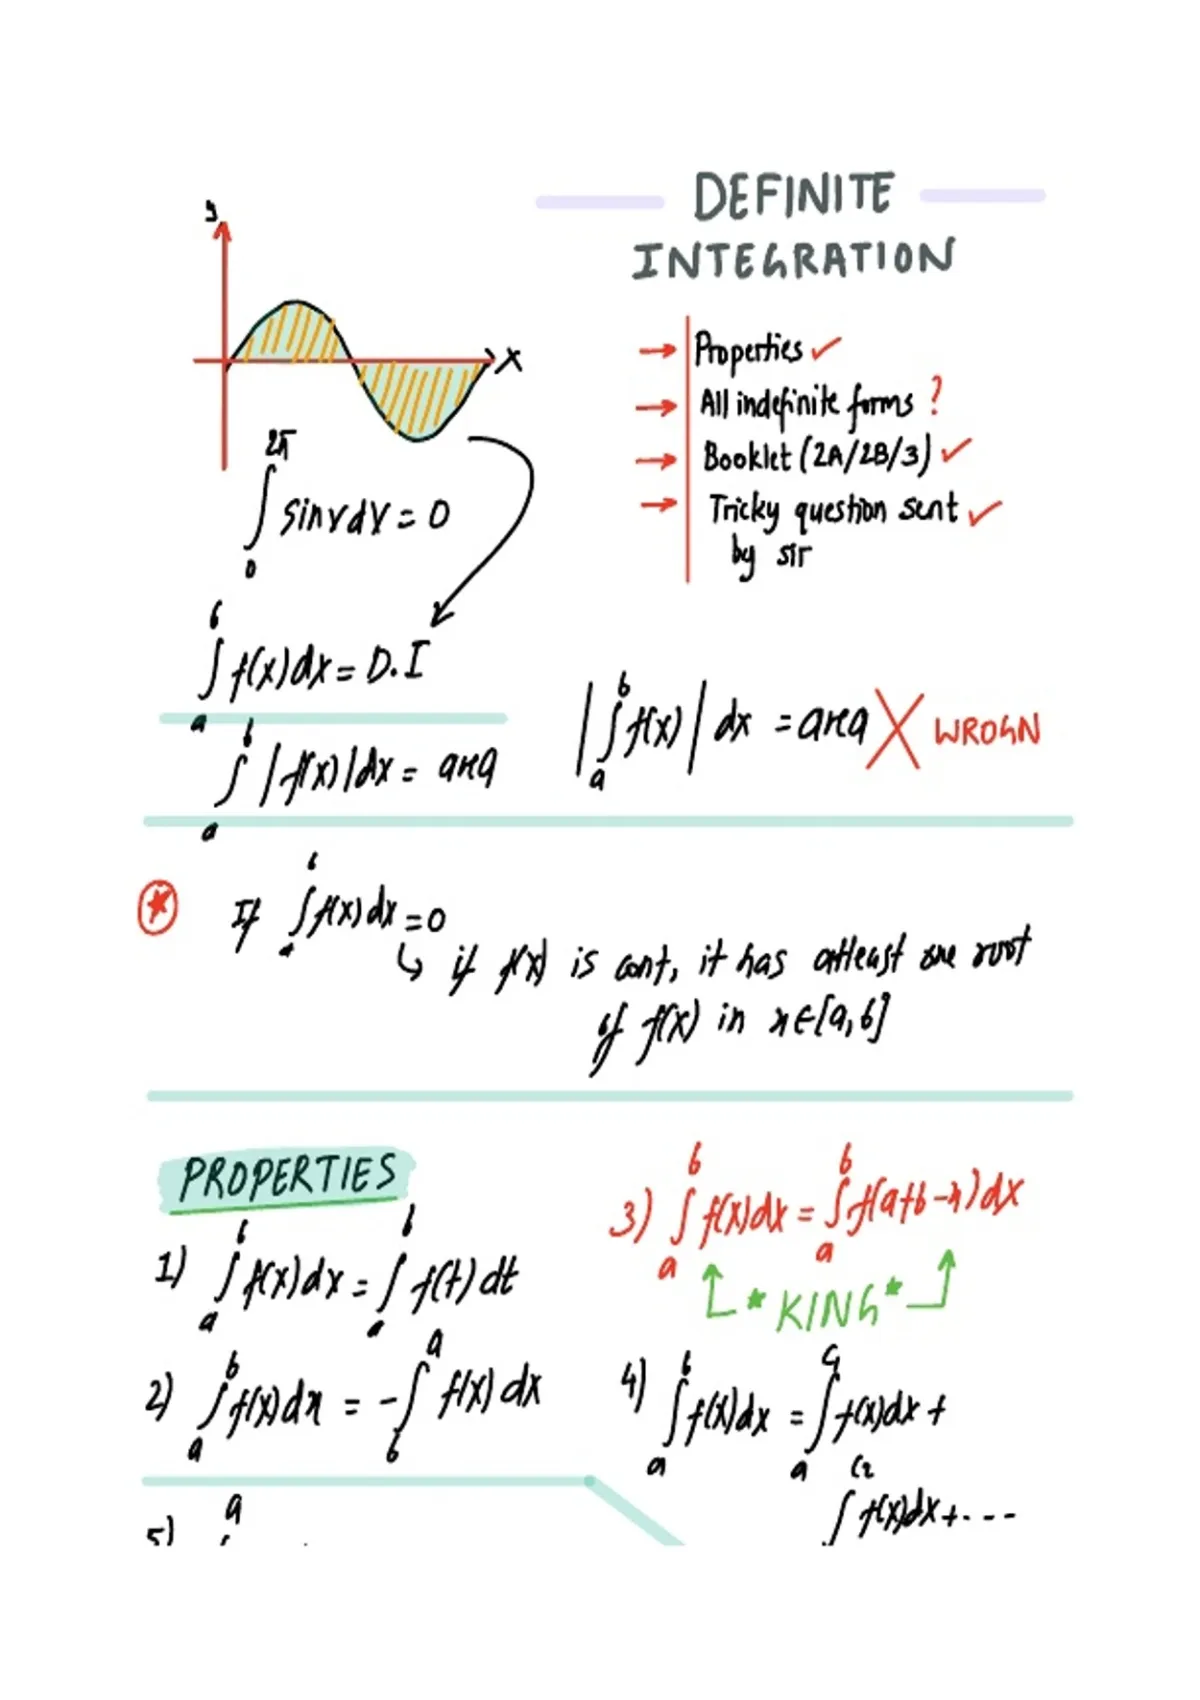 DEFINITE
INTEGRATION
→ Properties ✓
→ All indefinite forms ?
→ Booklet (2A/2B/3) ✓
→ Tricky question sent ✓
by sir
y
x
∫₀^2π sinx dx = 0
∫ₐᵇ f(x)dx = D.I
∫ₐᵇ |f(x)|dx = area
|∫ₐᵇ f(x)| dx = area X WRONG
If ∫ₐᵇ f(x)dx = 0
↳ if f(x) is cont, it has atleast one root
of f(x) in x∈[a,b]
PROPERTIES
1) ∫ₐᵇ f(x)dx = ∫ₐᵇ f(t)dt
2) ∫ₐᵇ f(x)dx = -∫_b^a f(x)dx
3) ∫ₐᵇ f(x)dx = ∫ₐᵇ f(a+b-x)dx
* KING *
4) ∫ₐᵇ f(x)dx = ∫ₐ^c₁ f(x)dx +
∫^c₂ f(x)dx + ---
5) a